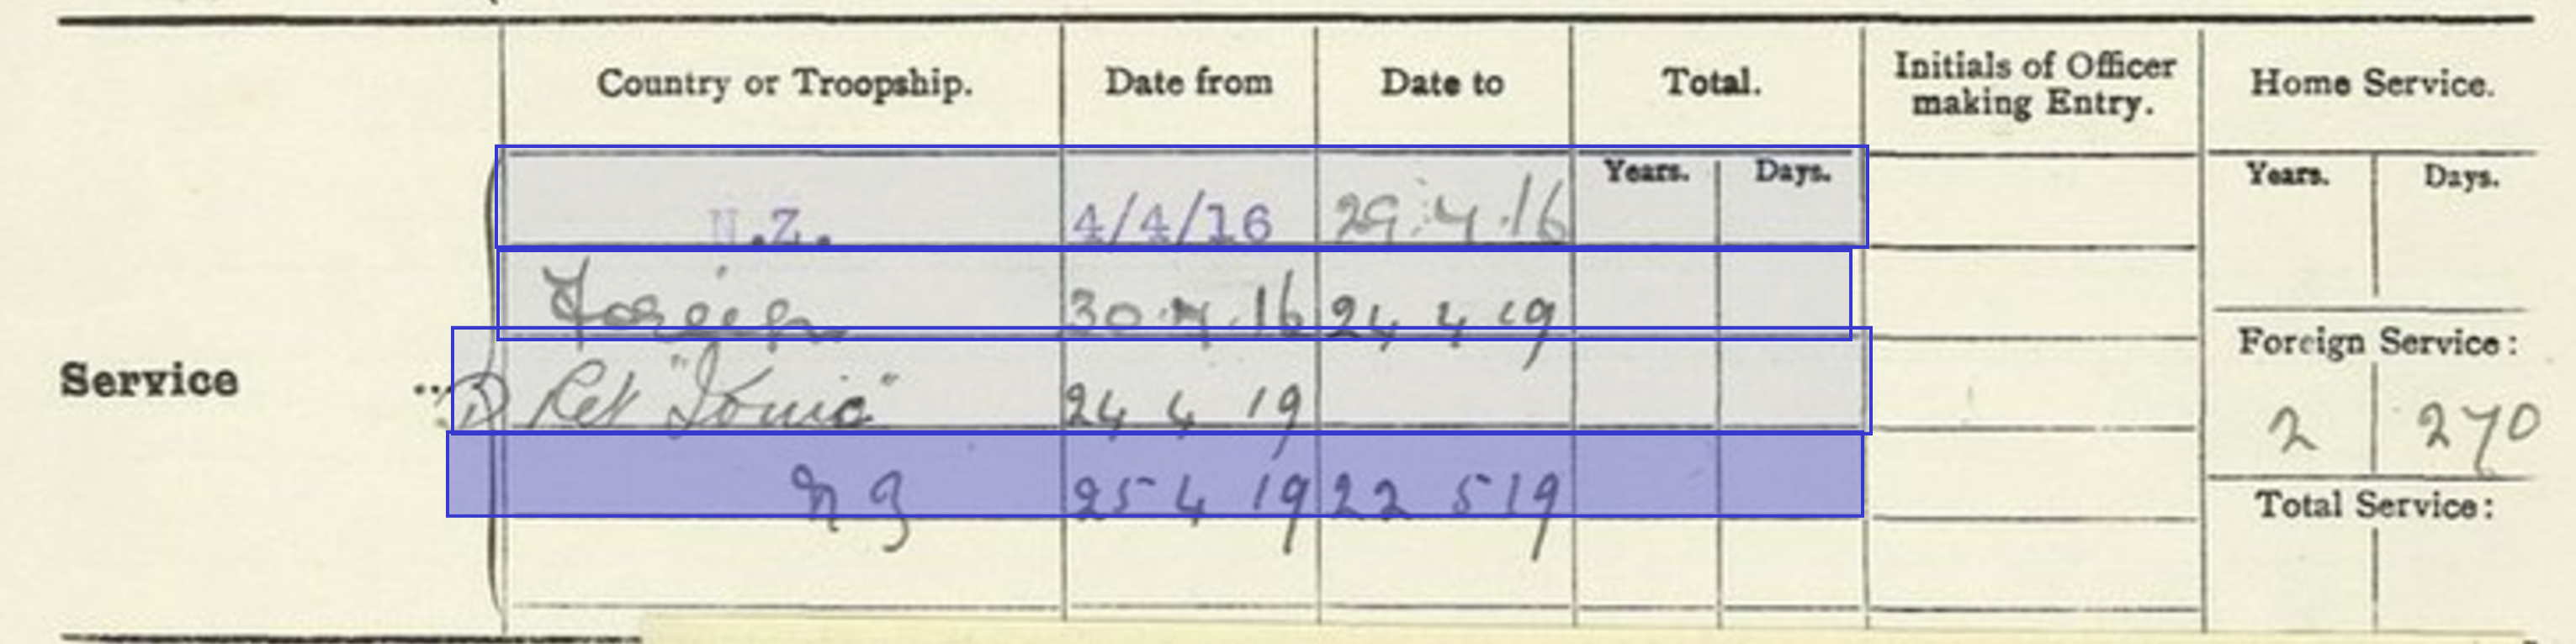 Country or Troopship. Date from Date to Total. Initials of Officer making Entry. Home Service.
Years. Days. Years. Days.
N.Z. 4/4/16 29.7.16
Foreign 30.7.16 24 4 19
Foreign Service:
Service ... Ret "Ionic" 24 4 19
2 270
NZ 25 4 19 22 5 19
Total Service: